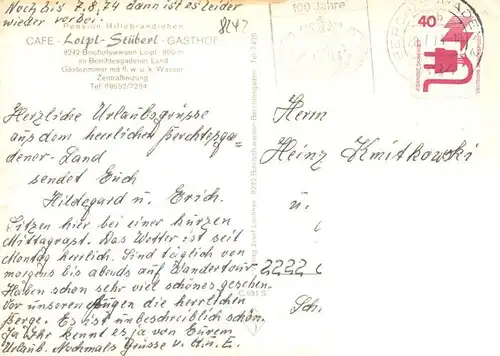 Noch bis 7.8.74 dann ist es leider
wieder vorbei.
Pension Hillebrandlehen
8247
CAFE - Loipl-Stüberl - GASTHOF
8242 Bischofswiesen-Loipl, 860 m
im Berchtesgadener Land
Gästezimmer mit fl. w. u. k. Wasser
Zentralheizung
Tel. 08652/7284
Herzliche Urlaubsgrüsse
aus dem herrlichen Berchtsga-
dener-Land
sendet Euch
Hildegard u. Erich.
Sitzen hier bei einer kurzen
Mittagrast. Das Wetter ist seit
Montag herrlich. Sind täglich von
morgens bis abends auf Wandertour
Haben schon sehr viel schönes gesehen.
Vor unseren Augen die herrlichen
Berge. Es ist unbeschreiblich schön.
Ja Ihr kennt es ja von Eurem
Urlaub. Nochmals Grüsse v. H. u. E.
8242 Bischofswiesen-Berchtesgaden
C 691 S
100 Jahre
40
Herrn
Heinz Kmitkowski
u.
2222